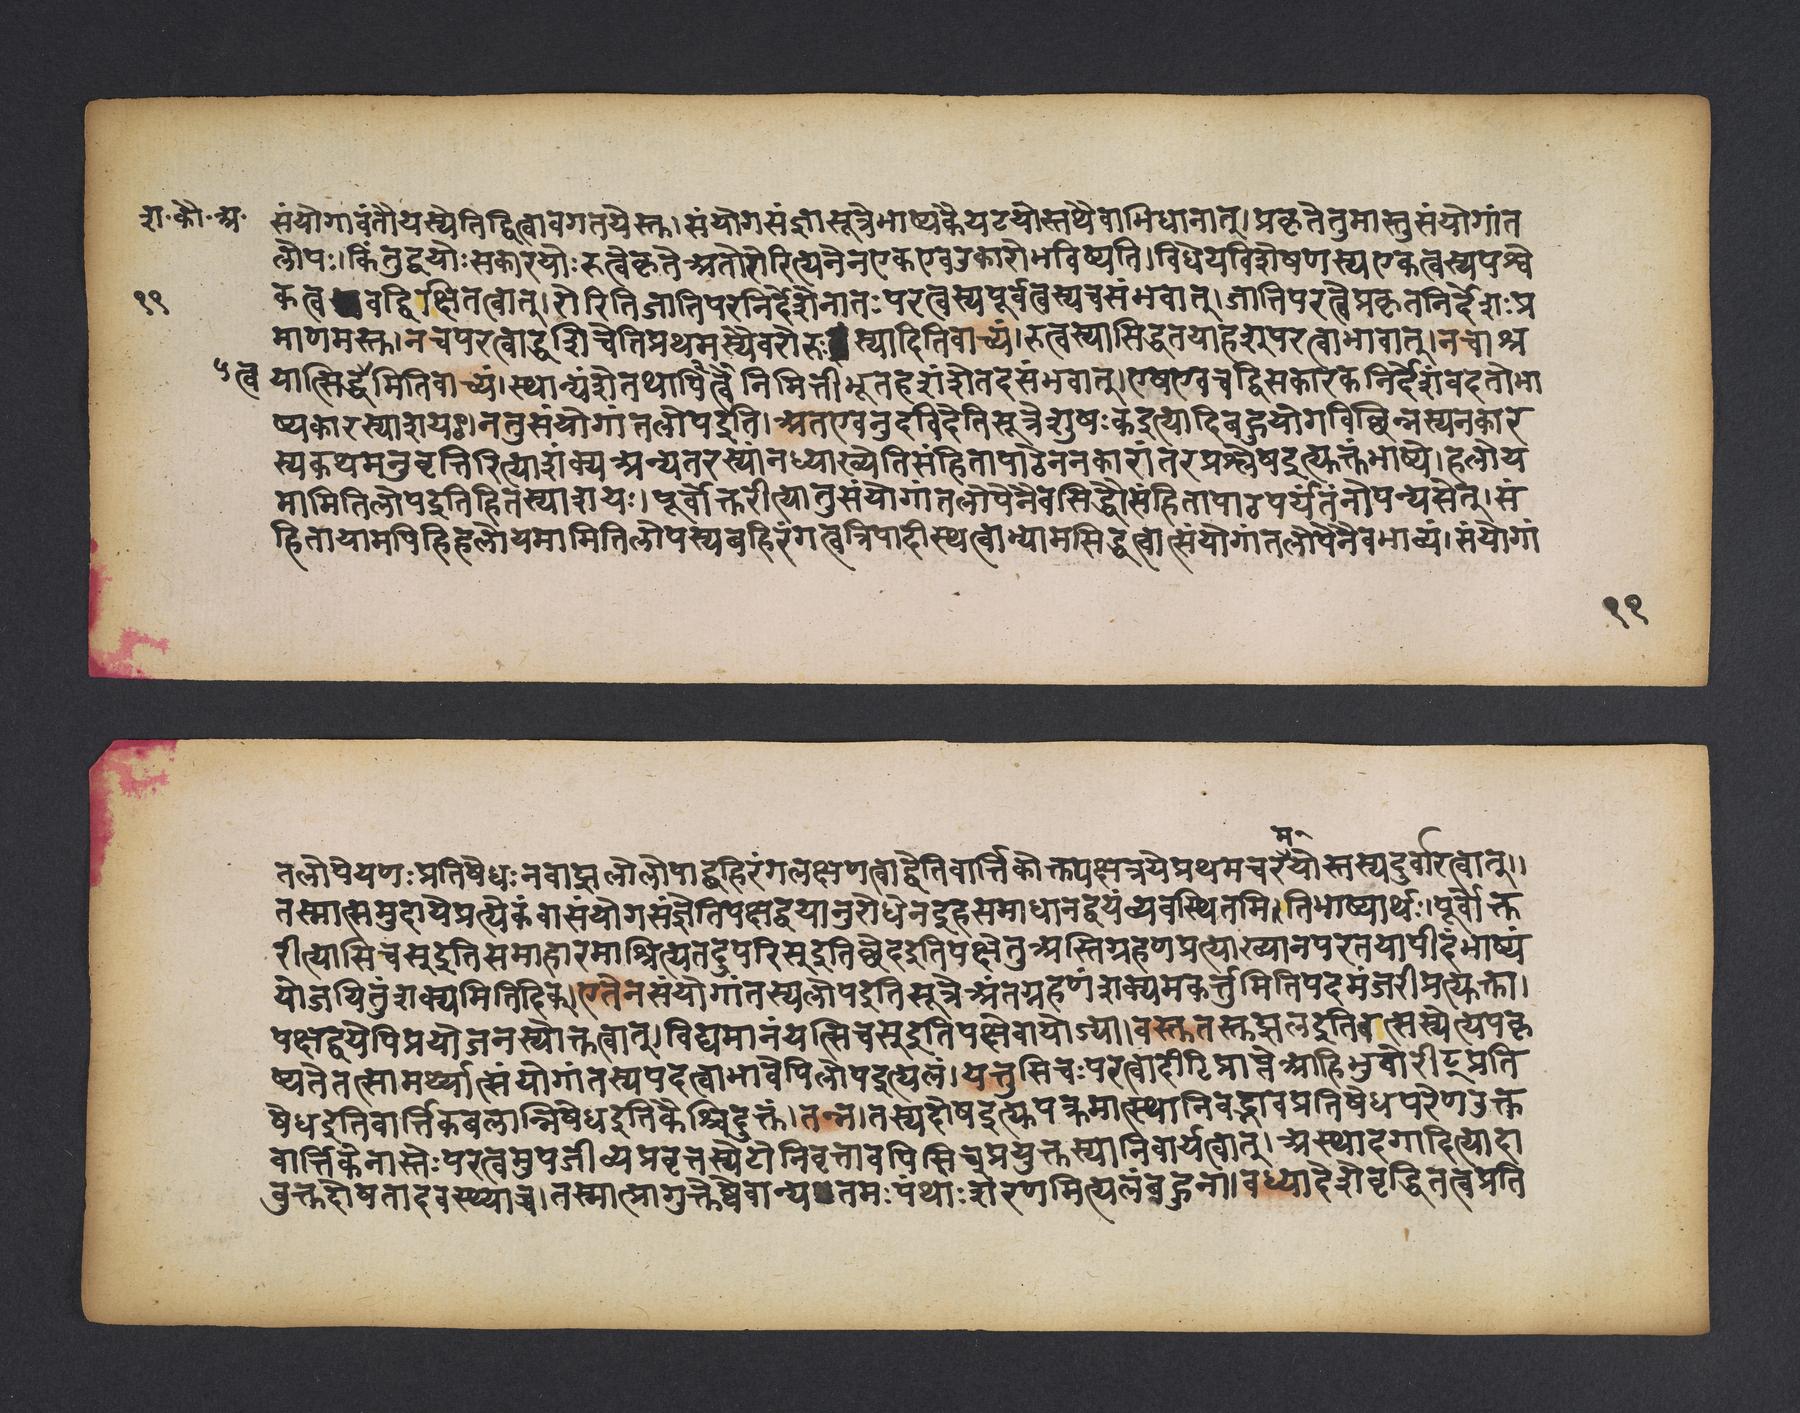 श॰ कौ॰ अ॰
११
संयोगावंतौयस्येतिद्वित्वावगतयेस्तु।संयोगसंज्ञासूत्रेभाष्यकैयटयोस्तथैवाभिधानात्।प्रकृतेतुमास्तुसंयोगांत
लोपः।किंतुद्वयोःसकारयोःरुत्वेकृतेअतोरोरित्यनेनएकएवउकारोभविष्यति।विधेयविशेषणस्यएकत्वस्यपश्वे
कत्ववद्विवक्षितत्वात्।रोरितिजातिपरनिर्देशेनातःपरत्वस्यपूर्वत्वस्यचसंभवात्।जातिपरत्वेप्रकृतनिर्देशःप्र
माणमस्तु।नचपरत्वाद्धशिचेतिप्रथमस्यैवरोरुःस्यादितिवाच्यं।रुत्वस्यासिद्धतयाहश्परत्वाभावात्।नचाश्र
५ त्व
यात्सिद्धमितिवाच्यं।स्थान्यंशेतथात्वेपिनिमित्तीभूतहशंशेतदसंभवात्।एषएवचद्विसकारकनिर्देशंवदतोभा
ष्यकारस्याशयः।नतुसंयोगांतलोपइति।अतएवनुदविदेतिसूत्रेशुषःकइत्यादिबहुयोगविछिन्नस्यनकार
स्यकथमनुवृत्तिरित्याशंक्यअन्यतरस्यांनध्याख्येतिसंहितापाठेननकारांतरप्रश्लेषइत्युक्तंभाष्ये।हलोय
मामितिलोपइतिहितस्याशयः।पूर्वोक्तरीत्यातुसंयोगांतलोपेनैवसिद्धौसंहितापाठपर्यंतंनोपन्यसेत्।सं
हितायामपिहिहलोयमामितिलोपस्यबहिरंगत्वत्रिपादीस्थत्वाभ्यामसिद्धत्वात्संयोगांतलोपेनैवभाव्यं।संयोगां
११
म
तलोपेयणःप्रतिषेधःनवाझलोलोपाद्बहिरंगलक्षणत्वाद्वेतिवार्त्तिकोक्तपक्षत्रयेप्रथमचरयोस्तस्यदुर्वारत्वात्।।
तस्मात्समुदायेप्रत्येकंवासंयोगसंज्ञेतिपक्षद्वयानुरोधेनइहसमाधानद्वयंव्यवस्थितमितिभाष्यार्थः।पूर्वोक्त
रीत्यासिचसुइतिसमाहारमाश्रित्यतदुपरिसुइतिछेदइतिपक्षेतुअस्तिग्रहणप्रत्याख्यानपरतयापीदंभाष्यं
योजयितुंशक्यमितिदिक्।एतेनसंयोगांतस्यलोपइतिसूत्रेअंतग्रहणंशक्यमकर्त्तुमितिपदमंजरीप्रत्युक्ता।
पक्षद्वयेपिप्रयोजनस्योक्तत्वात्।विद्यमानंयत्सिचसुइतिपक्षेवायोज्या।वस्तुतस्तुझलइतिवत्सस्येत्येपकृ
ष्यतेतत्सामर्थ्यात्संयोगांतस्यपदत्वाभावेपिलोपइत्यलं।यत्तुसिचःपरत्वादीटिप्राप्तेआहिभुवोरीट्प्रति
षेधइतिवार्त्तिकबलान्निषेधइतिकैश्चिदुक्तं।तन्न।तस्यदोषइत्युपक्रमात्स्थानिवद्भावप्रतिषेधपरेणउक्त
वार्त्तिकेनास्तेःपरत्वमुपजीव्यप्रवृत्तस्येटोनिवृत्तावपिसिच्प्रयुक्तस्यानिवार्यत्वात्।अस्थादगादित्यादा
वुक्तदोषतादवस्थ्याच्च।तस्मात्प्रागुक्तेष्वेवान्यतमःपंथाःशरणमित्यलंबहुना।वध्यादेशेवृद्धितत्वप्रति